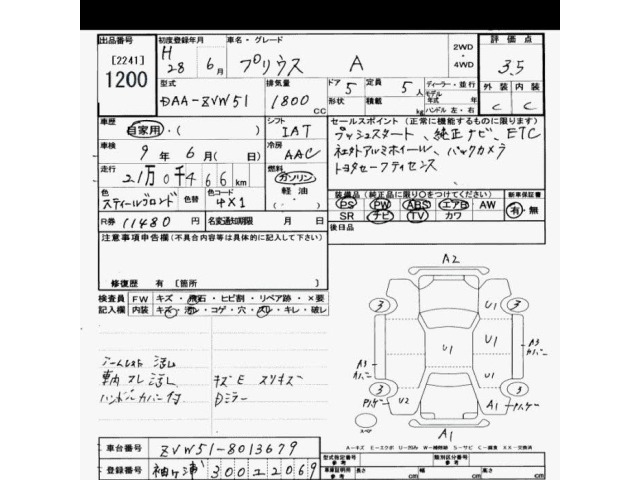 出品番号 初度登録年月 車名・グレード 評価点
[2241] H 28年 6月 プリウス A 2WD ・ 4WD 3.5
1200 型式 排気量 ドア 5 定員 5人 ディーラー・並行 外装 内装
DAA-ZVW51 1800 CC 形状 積載 kg モデル 年式 年 ハンドル 左・右 C C
車歴 自家用・( ) シフト IAT セールスポイント (正常に機能するものに限ります)
車検 9年 6月( 日) 冷房 AAC プッシュスタート、純正ナビ、ETC
社外アルミホイール、バックカメラ
走行 2.1万0千466km 燃料 ガソリン 軽油 ( ) トヨタセーフティセンス
色 スティールブロンド 色替 色コード 4X1 装備品 (純正品に限り○をつけてください) 新車保証書
PS PW ABS エアB AW 有・無
R券 11480円 名変通知期限 月 日 SR ナビ TV カワ
注意事項申告欄(不具合内容等は具体的に記入して下さい) 後日品
修復歴 有 [箇所 ]
検査員 FW キズ・飛石・ヒビ割・リペア跡・×要
記入欄 内装 キズ・汚レ・コゲ・穴・スレ・キレ・破レ
A2
3 U1 3
U1 U1
A3 カバー A3 カバー
3 3
U2 A1
A1
スペア
車内 スレ 汚レ キズE スリキズ
ハンドルカバー付 Dミラー
A-キズ E-エクボ U-凹み W-補修跡 S-サビ C-腐食 XX-交換済
車台番号 ZVW51-8013679
登録番号 袖ヶ浦 300 ユ 2069
型式指定番号 参考 類別区分番号 参考
車庫証明用 参考 長さ cm 幅 cm 高さ cm